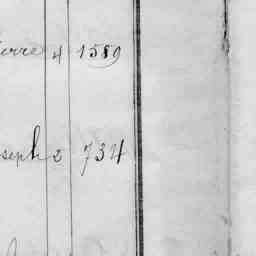 ierre 4 1589
oseph 2 734